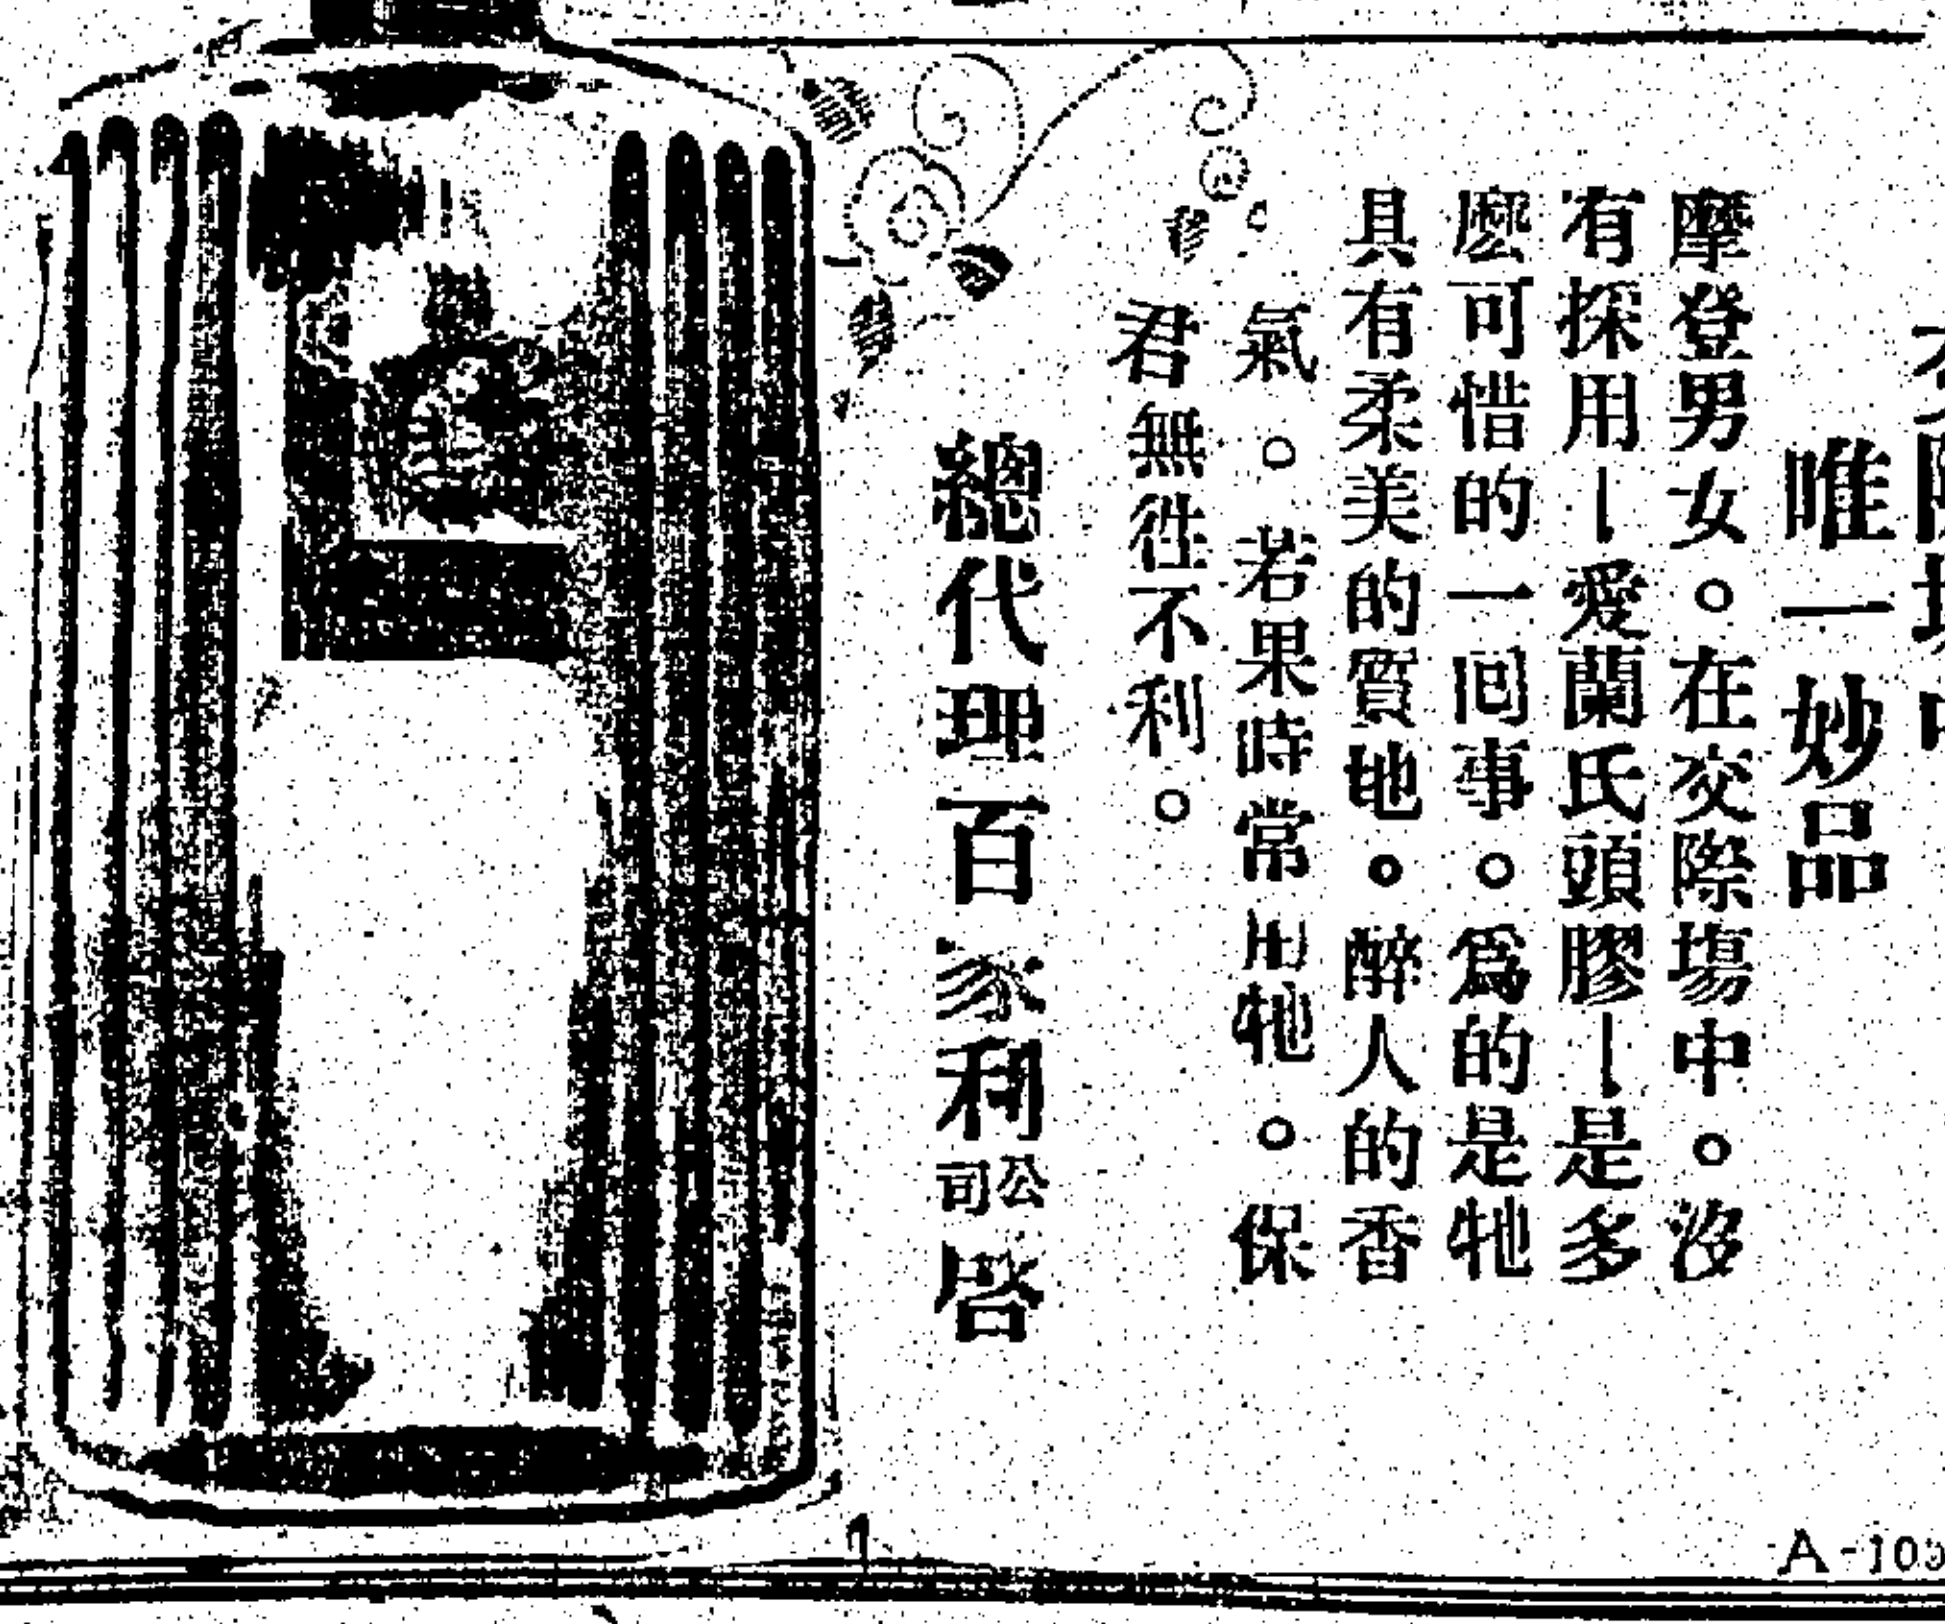 交際場中
唯一妙品
摩登男女。在交際塲中。沒
有採用—愛蘭氏頭膠—是多
麽可惜的一囘事。爲的是牠
具有柔美的質地。醉人的香
氣。若果時常用牠。保
君無徃不利。
總代理百家利公司啓
A-105